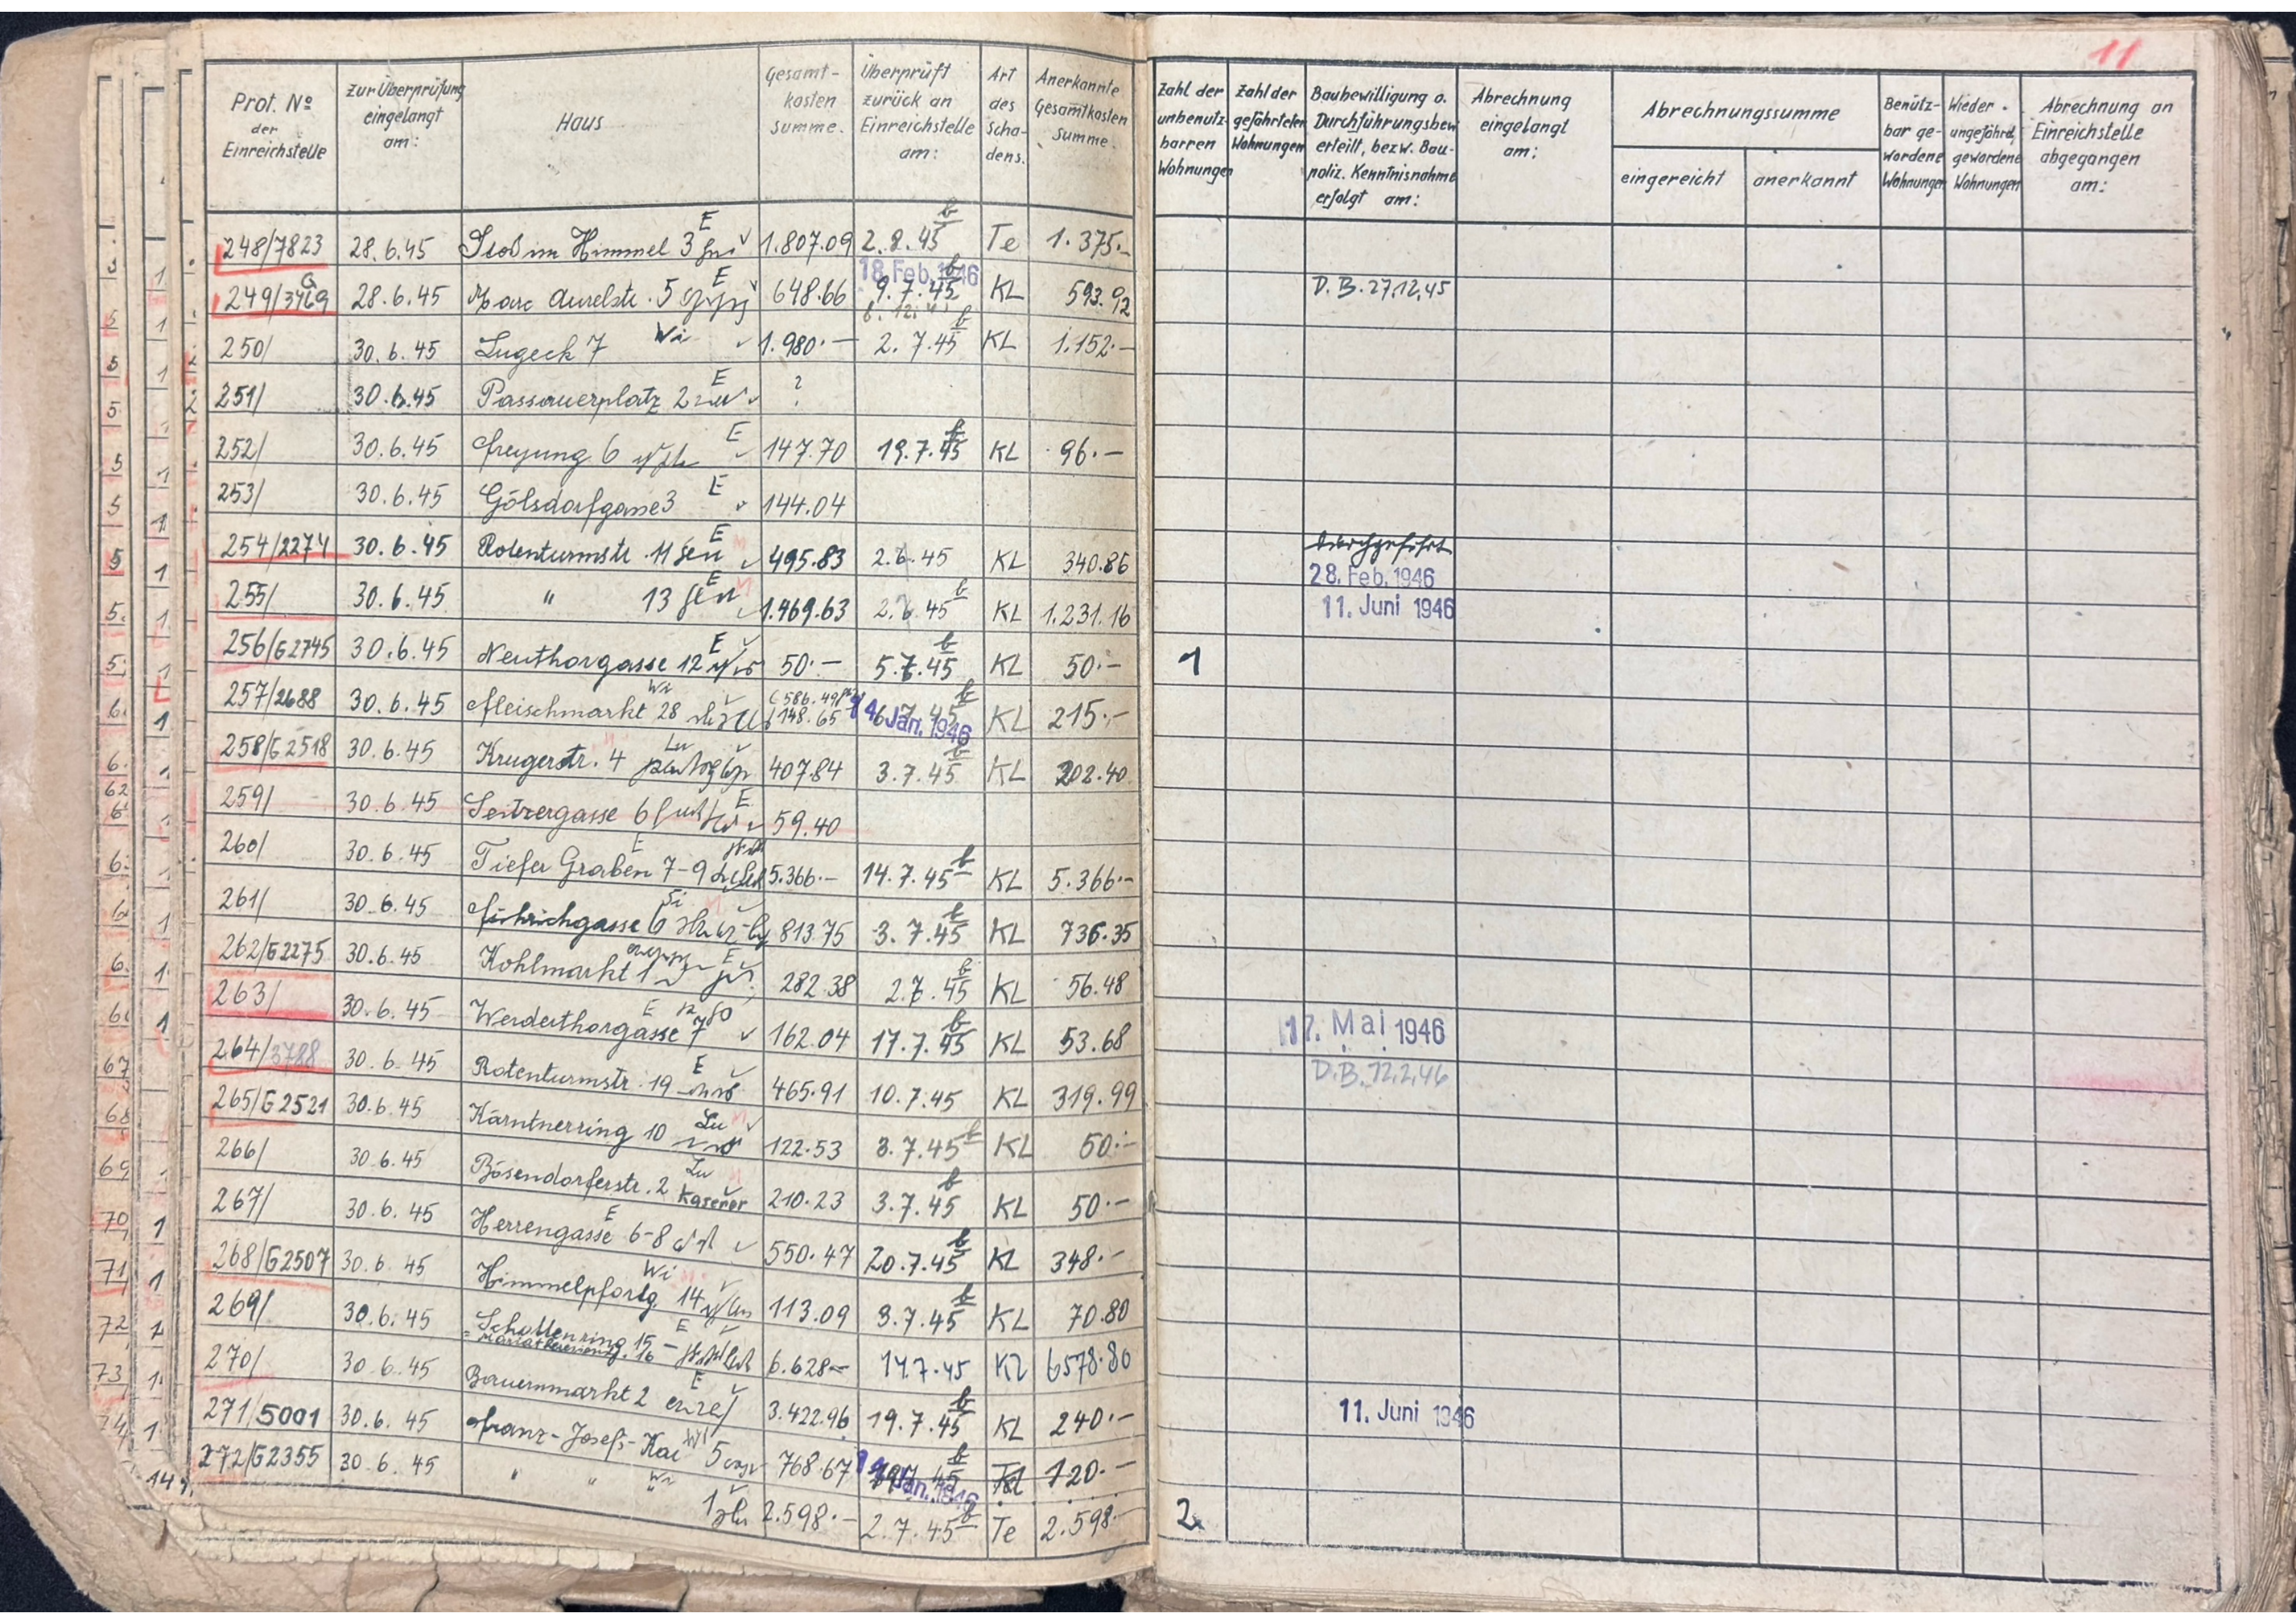 11
Prot. No der Einreichstelle | zur Überprüfung eingelangt am: | Haus | Gesamt-kosten summe. | Überprüft zurück an Einreichstelle am: | Art des Scha-dens. | Anerkannte Gesamtkosten Summe. | Zahl der unbenutz-barren Wohnungen | Zahl der gefährteten Wohnungen | Baubewilligung o. Durchführungsbew. erteilt, bezw. Bau-poliz. Kenntnisnahme erfolgt am: | Abrechnung eingelangt am: | Abrechnungssumme eingereicht | anerkannt | Benütz-bar ge-wordene Wohnungen | Wieder ungefährd. gewordene Wohnungen | Abrechnung an Einreichstelle abgegangen am:
248/7823 28.6.45 Stoß im Himmel 3 E 1.807.09 2.8.45 Te 1.375.-
249/3469 G 28.6.45 Marc Aurelstr. 5 E 648.66 18. Feb. 1946 9.7.45 KL 593.92 D.B. 27.12.45
250/ 30.6.45 Lugeck 7 Wi 1.980.— 2.7.45 KL 1.152.—
251/ 30.6.45 Passauerplatz 2 E ?
252/ 30.6.45 Freyung 6 E 147.70 19.7.45 KL 96.—
253/ 30.6.45 Gölsdorfgasse 3 E 144.04
254/2274 30.6.45 Rotenturmstr. 11 E 495.83 2.6.45 KL 340.86 durchgeführt 28. Feb. 1946
255/ 30.6.45 " 13 E 1.469.63 2.6.45 KL 1.231.16 11. Juni 1946
256/G2745 30.6.45 Neuthorgasse 12 E 50.— 5.7.45 KL 50.— 1
257/2688 30.6.45 Fleischmarkt 28 Wi 586.49 148.65 Jan. 1946 KL 215.—
258/G2518 30.6.45 Krugerstr. 4 Lu 407.84 3.7.45 KL 202.40
259/ 30.6.45 Seitzergasse 6 E 59.40
260/ 30.6.45 Tiefer Graben 7-9 E 5.366.— 14.7.45 KL 5.366.—
261/ 30.6.45 Führichgasse 6 Si 813.75 3.7.45 KL 736.35
262/G2275 30.6.45 Kohlmarkt 1 E 282.38 2.7.45 KL 56.48
263/ 30.6.45 Werderthorgasse 7 E 162.04 17.7.45 KL 53.68 17. Mai 1946
264/3788 30.6.45 Rotenturmstr. 19 E 465.91 10.7.45 KL 319.99 D.B. 12.2.46
265/G2521 30.6.45 Kärntnerring 10 Lu 122.53 3.7.45 KL 50.—
266/ 30.6.45 Bösendorferstr. 2 Lu 210.23 3.7.45 KL 50.—
267/ 30.6.45 Herrengasse 6-8 E 550.47 20.7.45 KL 348.—
268/G2507 30.6.45 Himmelpfortg. 14 Wi 113.09 3.7.45 KL 70.80
269/ 30.6.45 Schottenring 15 E 6.628— 14.7.45 Kl 6578.80
270/ 30.6.45 Bauernmarkt 2 E 3.422.96 19.7.45 KL 240.— 11. Juni 1946
271/5001 30.6.45 Franz-Josefs-Kai 5 Wi 768.67 Jan. 1946 120.—
272/G2355 30.6.45 " " Wi 1 2.598.— 2.7.45 Te 2.598.— 2